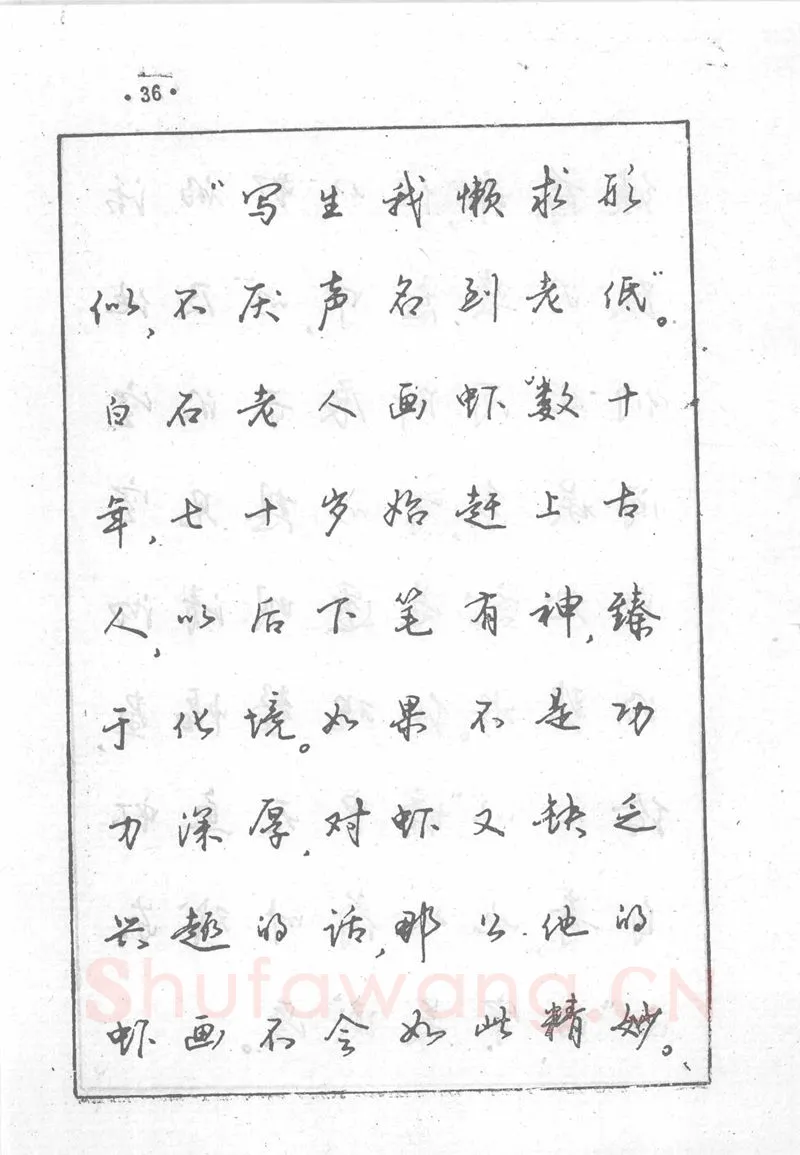 ·36·
“写生我懒求形
似,不厌声名到老低”。
白石老人画虾数十
年,七十岁始赶上古
人,以后下笔有神,臻
于化境。如果不是功
力深厚,对虾又缺乏
兴趣的话,那么他的
虾画不会如此精妙。
Shufawang.CN